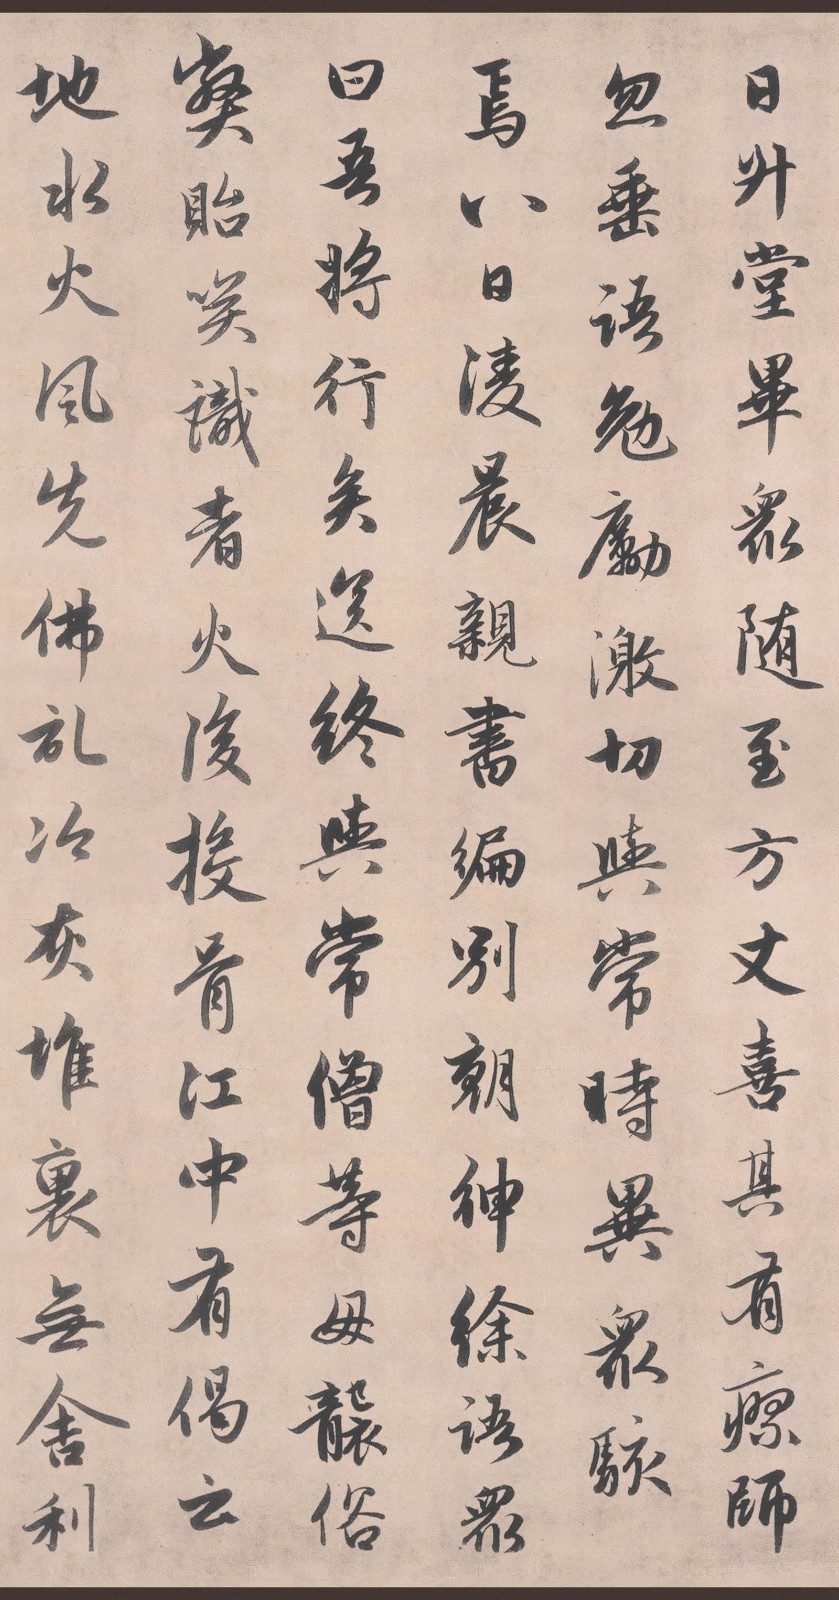 日升堂畢衆随至方丈喜其有瘳師
忽垂語勉勵激切與常時異衆駭
焉八日淩晨親書編別朝紳徐語衆
曰吾将行矣送終與常僧等毋襲俗
獘貽笑識者火後投骨江中有偈云
地水火風先佛記冷灰堆裏無舍利